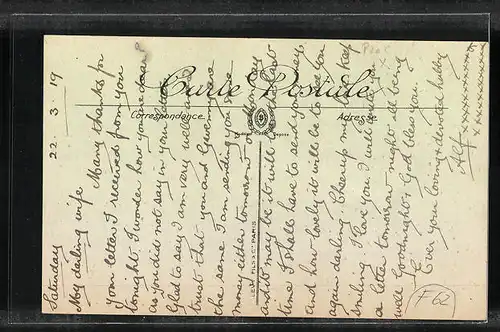 Saturday 22 . 3 . 19
My darling wife
Many thanks for
your letter I received from you
tonight. I wonder how you are dear
as you did not say in your letter
Glad to say I am very well and
trust that you and Gwennie are
the same I am sending you some
money either tomorrow or Monday
and it may be it will be the last
time I shall have to send you money
and how lovely it will be to see you
again darling Cheer up me love keep
smiling I love you I will send you
a letter tomorrow night all being
well Goodnight & God bless you
Ever your loving & devoted hubby
Alf xxxxxxxxx
Carte Postale
Correspondance
Adresse
PARIS